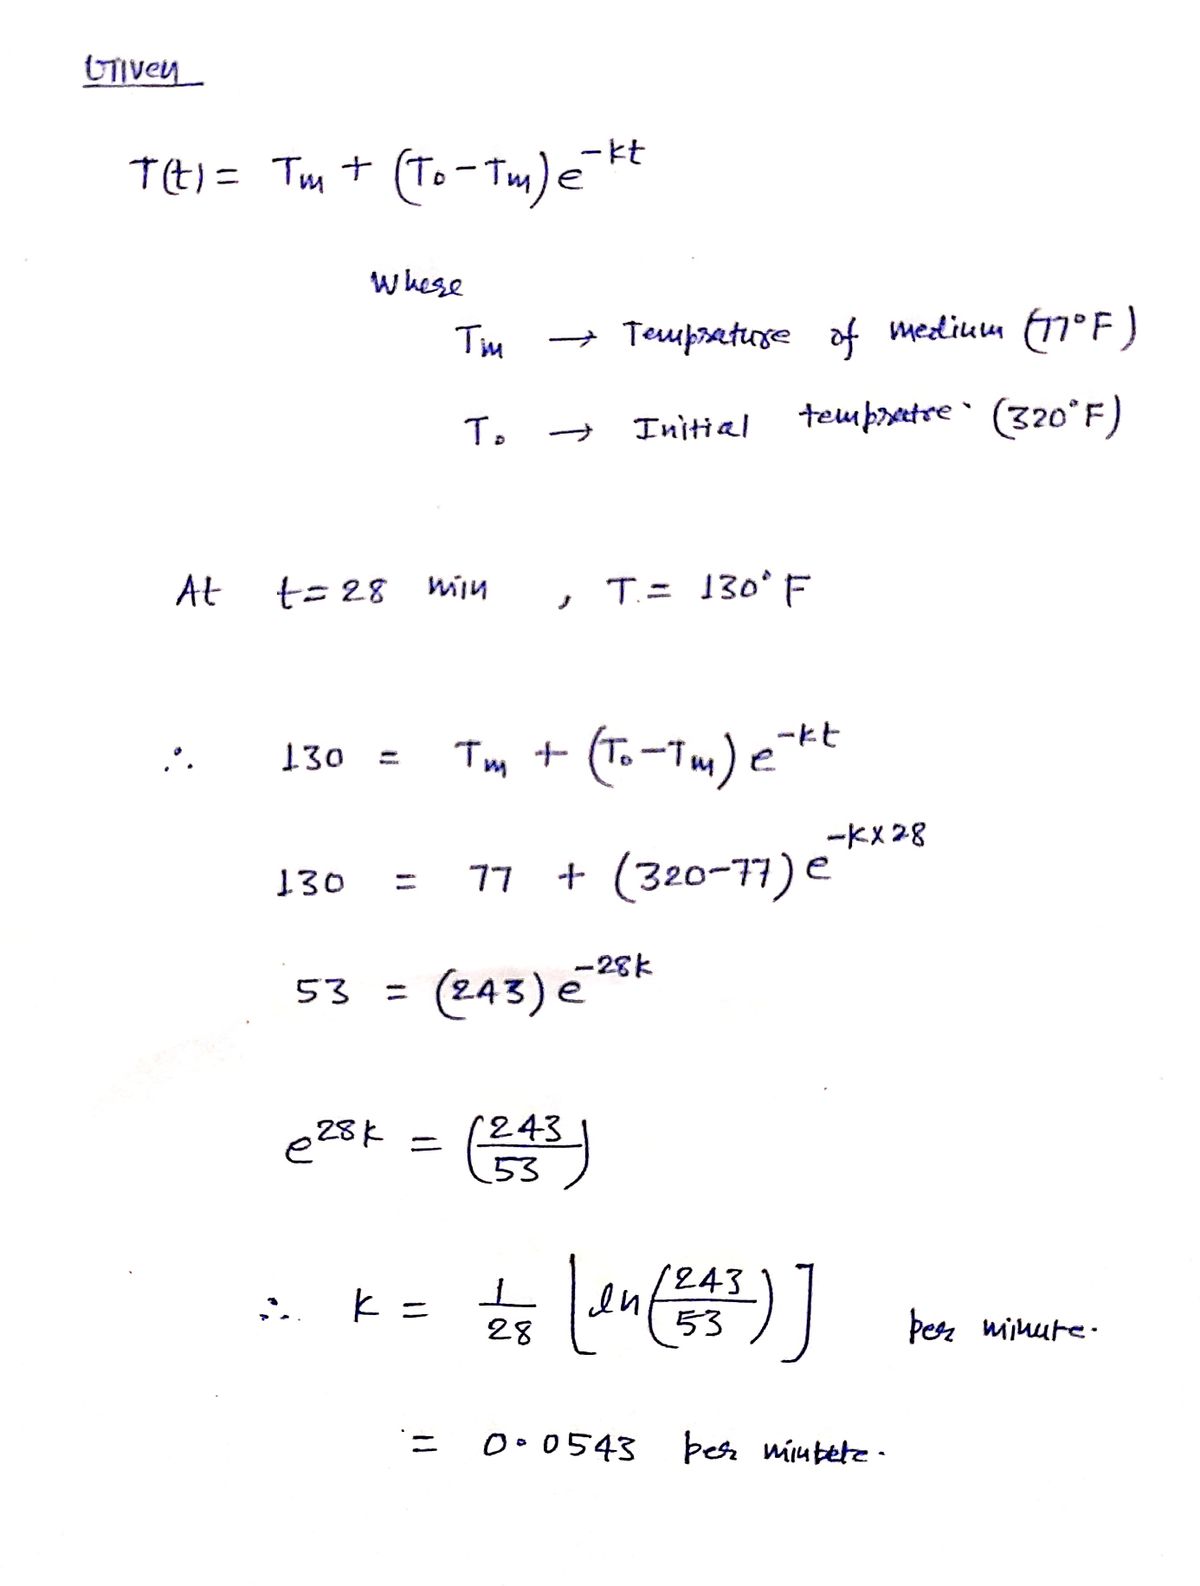 Given
T(t) = Tm + (To - Tm) e^-kt
Where
Tm → Temprature of medium (77°F)
To → Initial tempratre (320°F)
At t = 28 min , T = 130°F
∴ 130 = Tm + (To - Tm) e^-kt
130 = 77 + (320-77) e^-k×28
53 = (243) e^-28k
e^28k = (243/53)
∴ k = 1/28 [ln(243/53)] per minute.
= 0.0543 per